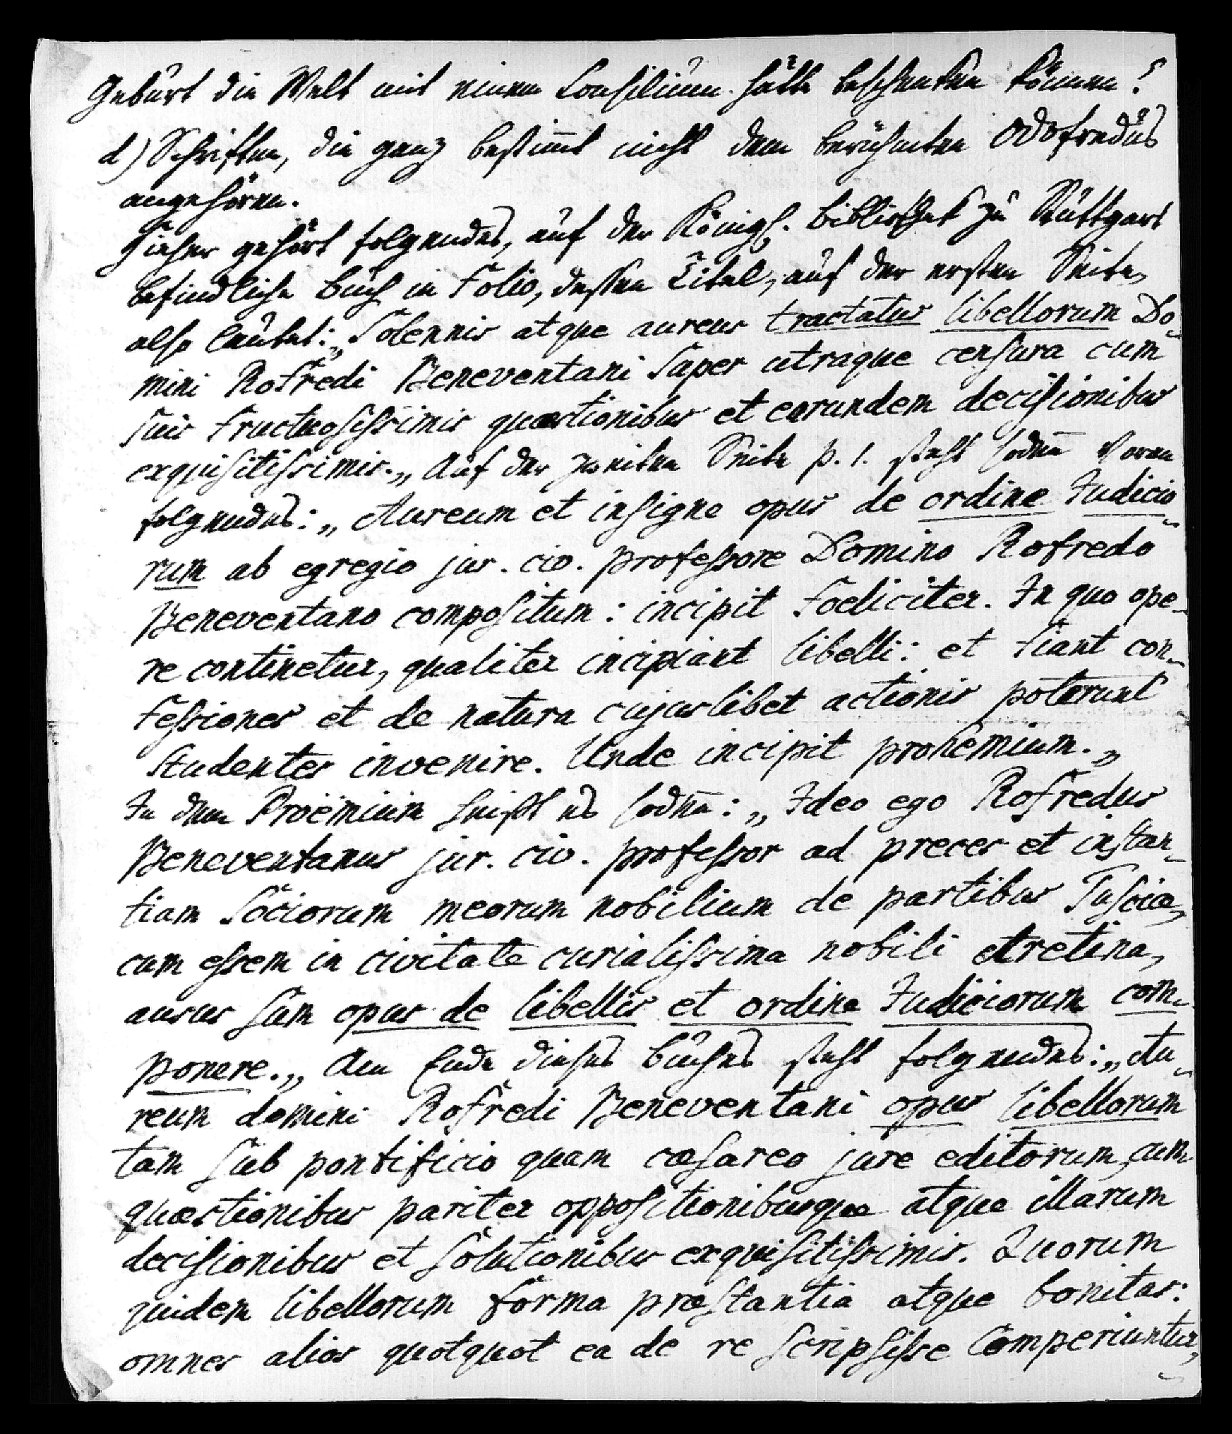 Geburt die Welt mit einem Consilium hätte beschenken können?
d) Schriften, die ganz bestimt nicht dem berühmten Odofredus
angehören.
Hieher gehört folgendes, auf der Königl. Bibliothek zu Stuttgart
befindliche Buch in Folio, dessen Titel, auf der ersten Seite,
also lautet: „Solennis atque aureus tractatus libellorum Do-
mini Rofredi Beneventani super utraque censura cum
suis fructuosissimis quaestionibus et earundem decisionibus
exquisitissimis.„ Auf der zweiten Seite p. 1. steht sodan voran
folgendes: „Aureum et insigne opus de ordine Judicio-
rum ab egregio jur. civ. professore Domino Rofredo
Beneventano compositum: incipit foeliciter. In quo ope-
re continetur, qualiter incipiant libelli: et fiant con-
fessiones et de natura cujuslibet actionis poterunt
studentes invenire. Unde incipit prohemium.„
In dem Proëmium heißt es sodan: „Ideo ego Rofredus
Beneventanus jur. civ. professor ad preces et instan-
tiam sociorum meorum nobilium de partibus Tuscia,
cum essem in civitate curialissima nobili Aretina,
ausus sum opus de libellis et ordine Judiciorum com-
ponere.„ Am Ende dieses Buches steht folgendes: „Au-
reum domini Rofredi Beneventani opus libellorum
tam sub pontificio quam caesareo jure editorum, cum
quaestionibus pariter oppositionibusque atque illarum
decisionibus et solutionibus exquisitissimis. Quorum
quidem libellorum forma praestantia atque bonitas:
omnes alios quotquot ea de re scripsisse comperiuntur,